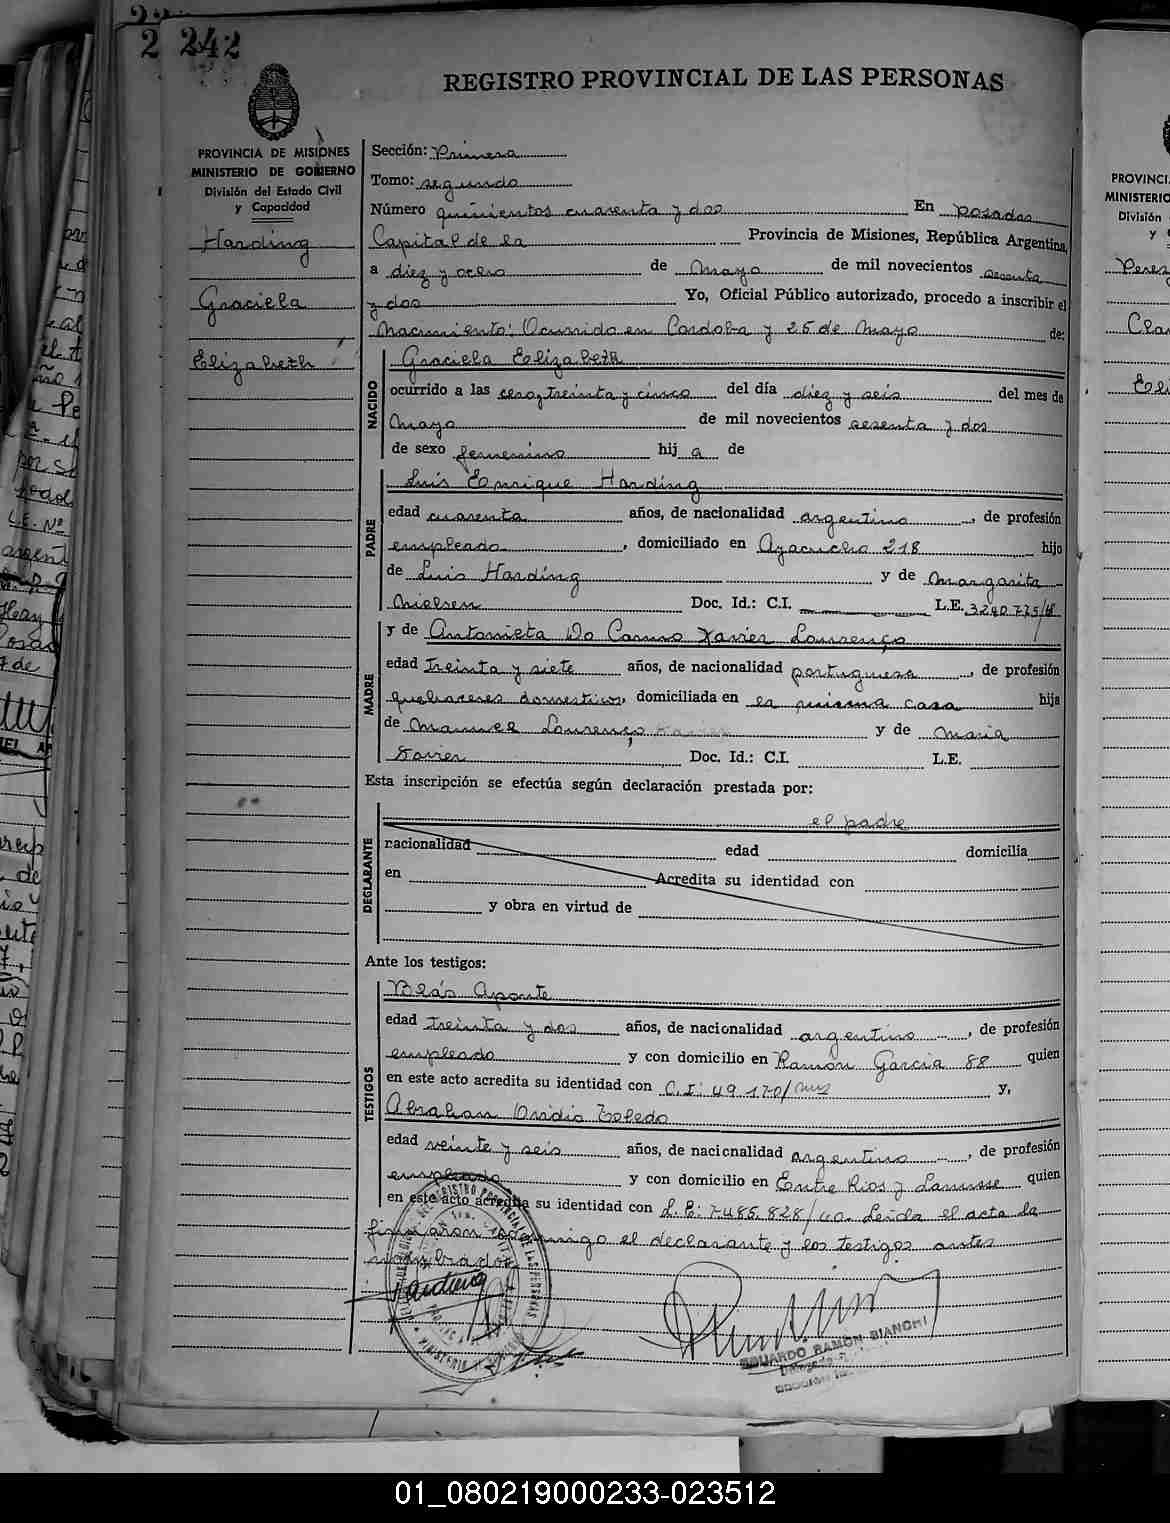 242
REGISTRO PROVINCIAL DE LAS PERSONAS
PROVINCIA DE MISIONES
MINISTERIO DE GOBIERNO
División del Estado Civil
y Capacidad
Harding
Graciela
Elizabeth
Sección: Primera
Tomo: segundo
Número quinientos cuarenta y dos En Posadas
Capital de la Provincia de Misiones, República Argentina,
a diez y ocho de Mayo de mil novecientos sesenta
y dos Yo, Oficial Público autorizado, procedo a inscribir el
Nacimiento: Ocurrido en Cordoba y 25 de Mayo de:
NACIDO
Graciela Elizabeth
ocurrido a las cero, treinta y cinco del día diez y seis del mes de
Mayo de mil novecientos sesenta y dos
de sexo femenino hij a de
PADRE
Luis Enrique Harding
edad cuarenta años, de nacionalidad argentino, de profesión
empleado, domiciliado en Ayacucho 218 hijo
de Luis Harding y de Margarita
Nielsen Doc. Id.: C.I. L.E. 3240775/
MADRE
y de Antonieta Do Carmo Xavier Lourenço
edad treinta y siete años, de nacionalidad portuguesa, de profesión
quehaceres domesticos, domiciliada en la misma casa hija
de Manuel Lourenço y de Maria
Xavier Doc. Id.: C.I. L.E.
Esta inscripción se efectúa según declaración prestada por:
DECLARANTE
el padre
nacionalidad edad domicilia
en Acredita su identidad con
y obra en virtud de
Ante los testigos:
TESTIGOS
Blás Aponte
edad treinta y dos años, de nacionalidad argentino, de profesión
empleado y con domicilio en Ramón Garcia 88 quien
en este acto acredita su identidad con C.I: 49.170/ y,
Abrahan Ovidio Toledo
edad veinte y seis años, de nacionalidad argentino, de profesión
empleado y con domicilio en Entre Rios y Lanusse quien
en este acto acredita su identidad con L.E: 7.485.828/40. Leida el acta la
firmaron conmigo el declarante y los testigos antes
nombrados
EDUARDO RAMÓN BIANCHI
01_080219000233-023512